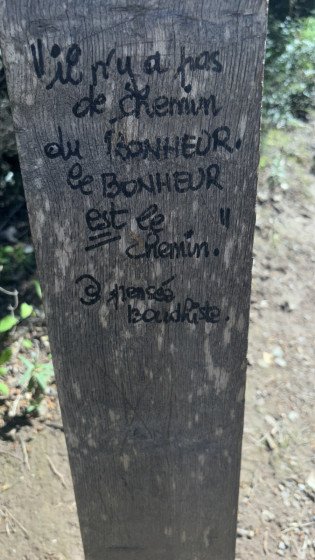 "il n'y a pas
de chemin
du BONHEUR.
le BONHEUR
est le
chemin."
pensée
Boudhiste.